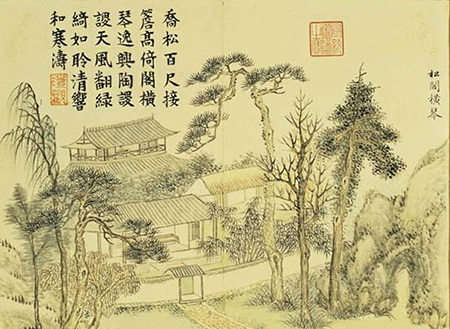 松閣橫琴
喬松百尺接
簷高倚閣橫
琴逸興陶謖
謖天風翻緑
綺如聆清響
和寒濤